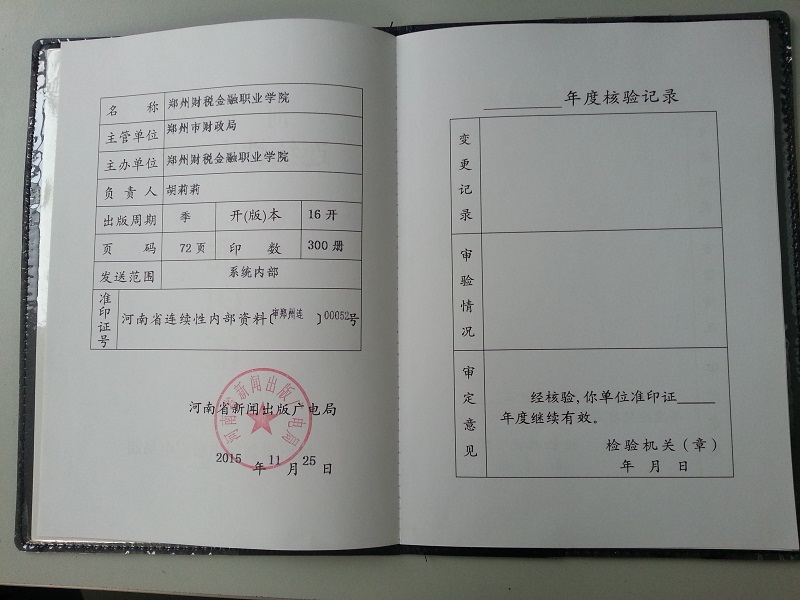 名 称 郑州财税金融职业学院
主管单位 郑州市财政局
主办单位 郑州财税金融职业学院
负责人 胡莉莉
出版周期 季 开(版)本 16开
页 码 72页 印 数 300册
发送范围 系统内部
准印证号 河南省连续性内部资料〔审郑州连 〕00052号
河南省新闻出版广电局
河南省新闻出版广电局
2015 年 11 月 25 日
年度核验记录
变更记录
审验情况
审定意见
经核验,你单位准印证
年度继续有效。
检验机关(章)
年 月 日